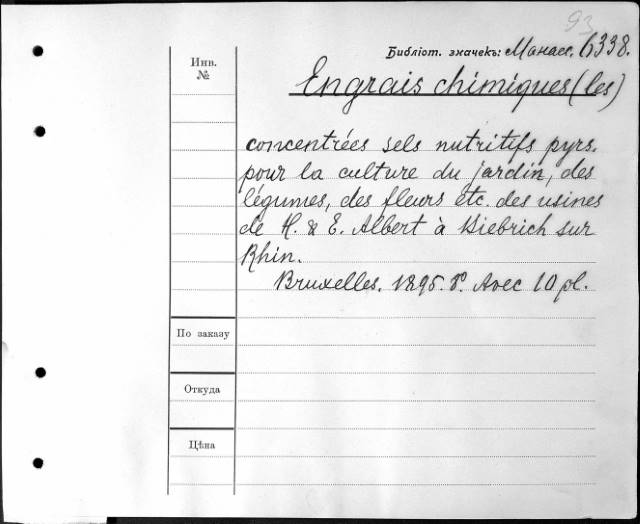 93
Библіот. значекъ: Манасс. 6338.
Инв.
№
Engrais chimiques (les)
concentrées sels nutritifs purs.
pour la culture du jardin, des
légumes, des fleurs etc. des usines
de H. & E. Albert à Biebrich sur
Rhin.
Bruxelles. 1895. 8°. Avec 10 pl.
По заказу
Откуда
Цѣна